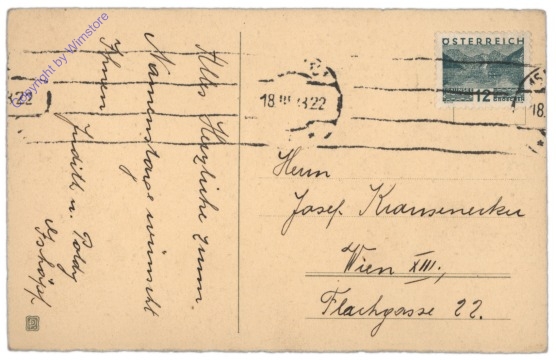 Copyright by Wimstore
Alles Herzliche zum
Namenstage wünscht
Ihnen
Judith u. Poldy
ÖSTERREICH
12 GROSCHEN
18.III. 22
Herrn
Josef Kransenecker
Wien XIII.,
Flachgasse 22.